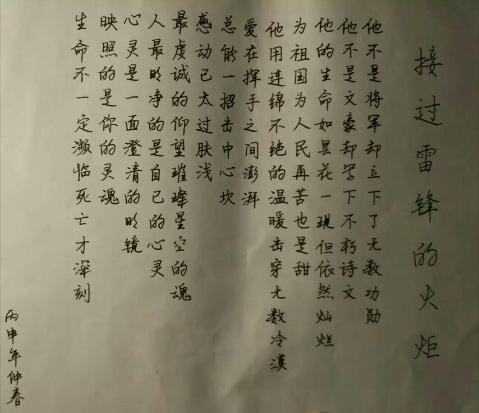 接过雷锋的火炬
他不是将军却立下了无数功勋
他不是文豪却写下不朽诗文
他的生命如昙花一现但依然灿烂
为祖国为人民再苦也是甜
他用连绵不绝的温暖击穿无数冷漠
爱在挥手之间澎湃
总能一招击中心坎
感动已太过肤浅
最虔诚的仰望璀璨星空的魂
人最明净的是自己的心灵
心灵是一面澄清的明镜
映照的是你的灵魂
生命不一定濒临死亡才深刻
丙申年仲春